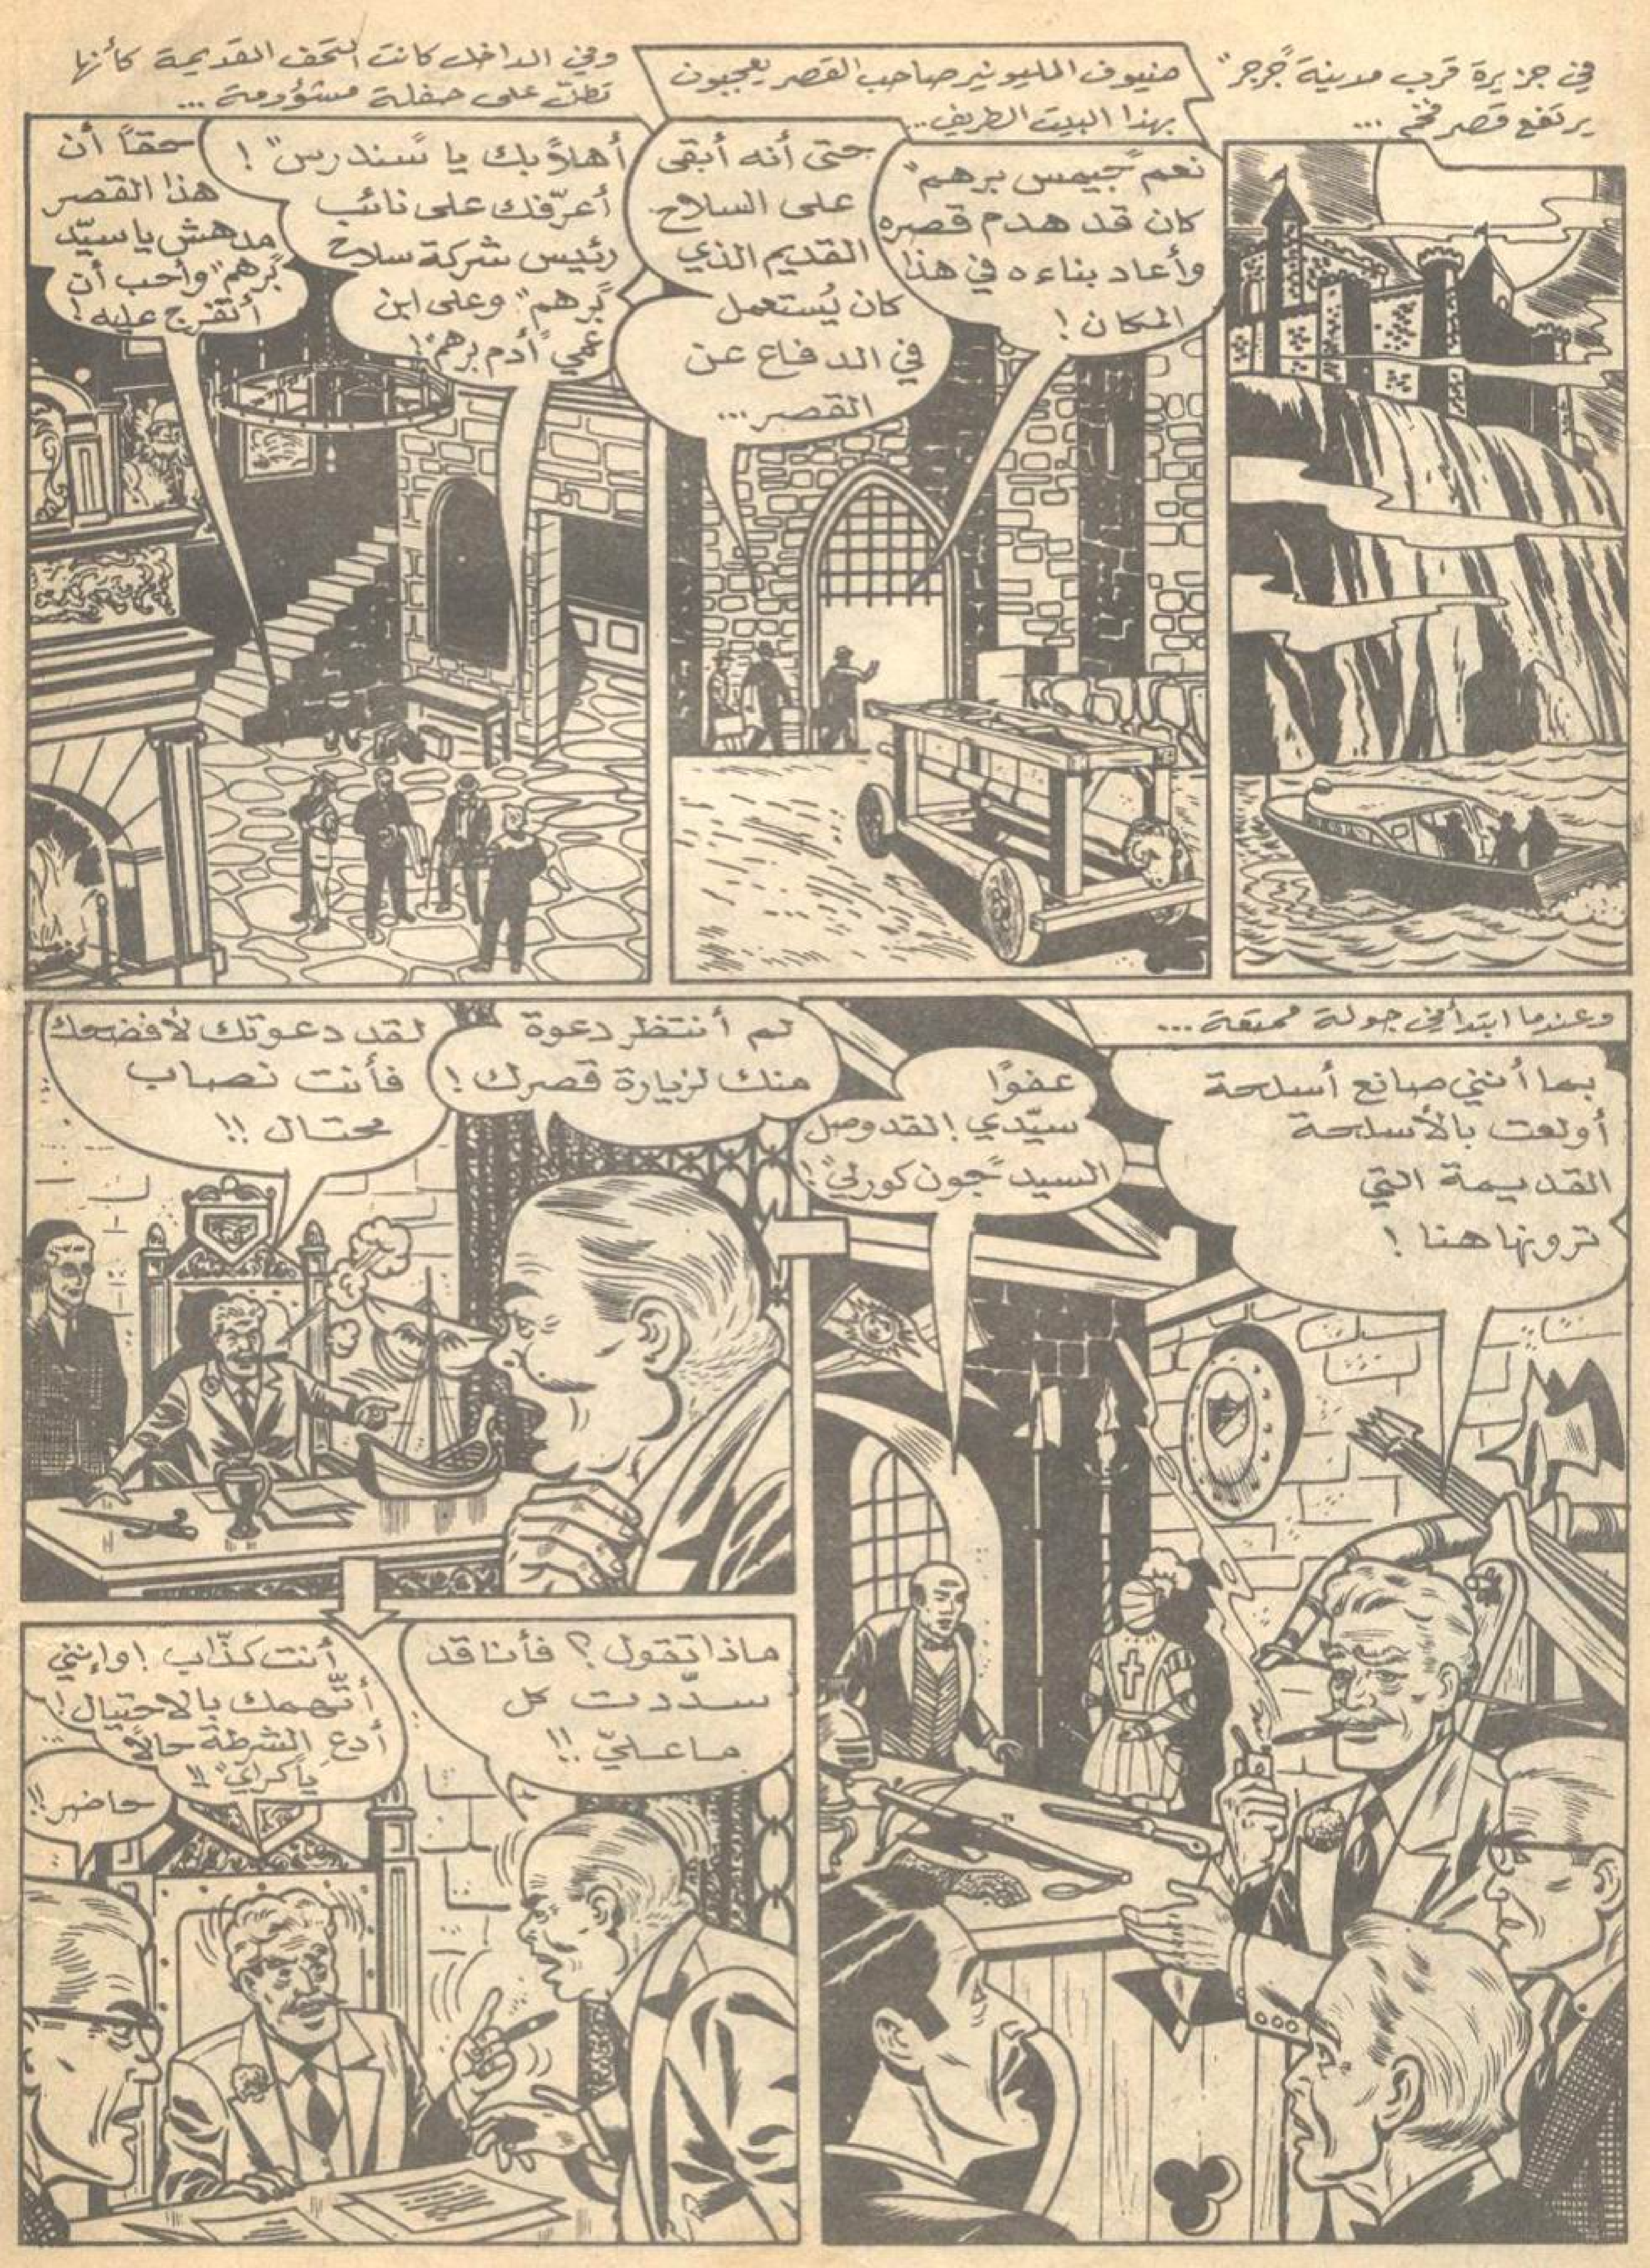 في جزيرة قرب مدينة "جرجر"
يرتفع قصر فخم ...
ضيوف المليونير صاحب القصر يعجبون
بهذا البيت الطريف..
نعم "جيمس برهم"
كان قد هدم قصره
وأعاد بناءه في هذا
المكان !
حتى أنه أبقى
على السلاح
القديم الذي
كان يُستعمل
في الدفاع عن
القصر...
وفي الداخل كانت التحف القديمة كأنها
تطلّ على حفلة مشؤومة ...
أهلاً بك يا "سندرس" !
أعرّفك على نائب
رئيس شركة سلاح
"برهم" وعلى ابن
عمي "آدم برهم"!
حقاً أن
هذا القصر
مدهش يا سيّد
"برهم" وأحب أن
أتفرج عليه !
وعندما ابتدأ في جولة ممتعة ...
بما أنني صانع أسلحة
أولعت بالأسلحة
القديمة التي
ترونها هنا !
عفوًا
سيّدي ! لقد وصل
السيد "جون كورلي"!
لم أنتظر دعوة
منك لزيارة قصرك !
لقد دعوتك لأفضحك
فأنت نصاب
محتال !!
ماذا تقول ؟ فأنا قد
سدّدت كل
ما عليّ !!
أنت كذّاب ! وإنني
أتّهمك بالاحتيال !
أدع الشرطة حالاً
يا "كراي" !!
حاضر !!